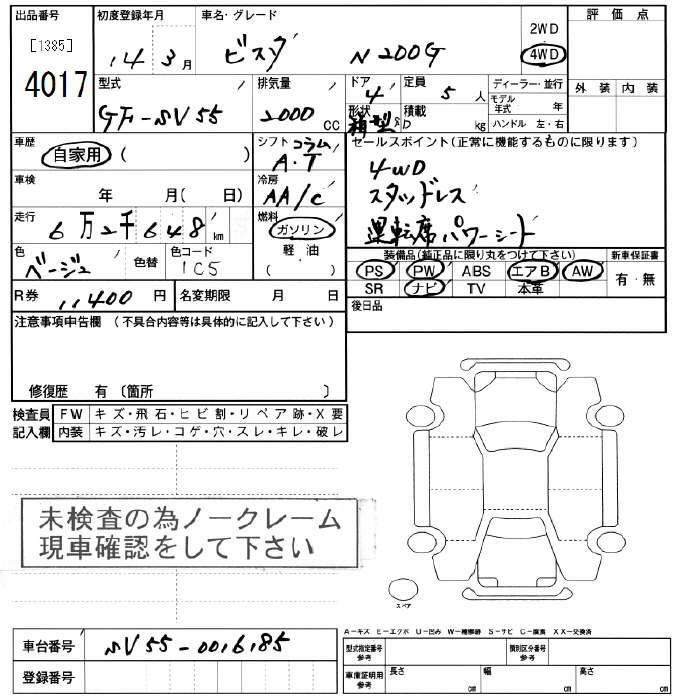 出品番号 初度登録年月 車名・グレード 評価点
[1385] 14 3月 ビスタ N200G 2WD
4017 4WD
型式 排気量 ドア 定員 ディーラー・並行 外装 内装
GF-SV55 2000 CC 4 5 人 モデル年式 年
形状 箱型 積載 kg ハンドル 左・右
車歴 シフト コラム セールスポイント(正常に機能するものに限ります)
自家用 ( ) A・T 4WD
車検 年 月( 日) 冷房 AA/C スタッドレス
走行 6万2千648km 燃料 ガソリン 運転席パワーシート
軽・油
( )
色 ベージュ 色替 色コード 1C5
装備品(純正品に限り丸をつけて下さい) 新車保証書
PS PW ABS エアB AW 有・無
SR ナビ TV 本革
R券 11,400 円 名変期限 月 日 後日品
注意事項申告欄 (不具合内容等は具体的に記入して下さい)
修復歴 有 〔箇所 〕
検査員 FW キズ・飛石・ヒビ割・リペア跡・X要
記入欄 内装 キズ・汚レ・コゲ・穴・スレ・キレ・破レ
未検査の為ノークレーム
現車確認をして下さい
スペア
A-キズ E-エクボ U-凹み W-補修跡 S-サビ C-腐食 XX-交換済
車台番号 SV55-0016185
登録番号
型式指定番号 参考 類別区分番号 参考
車庫証明用 参考 長さ cm 幅 cm 高さ cm